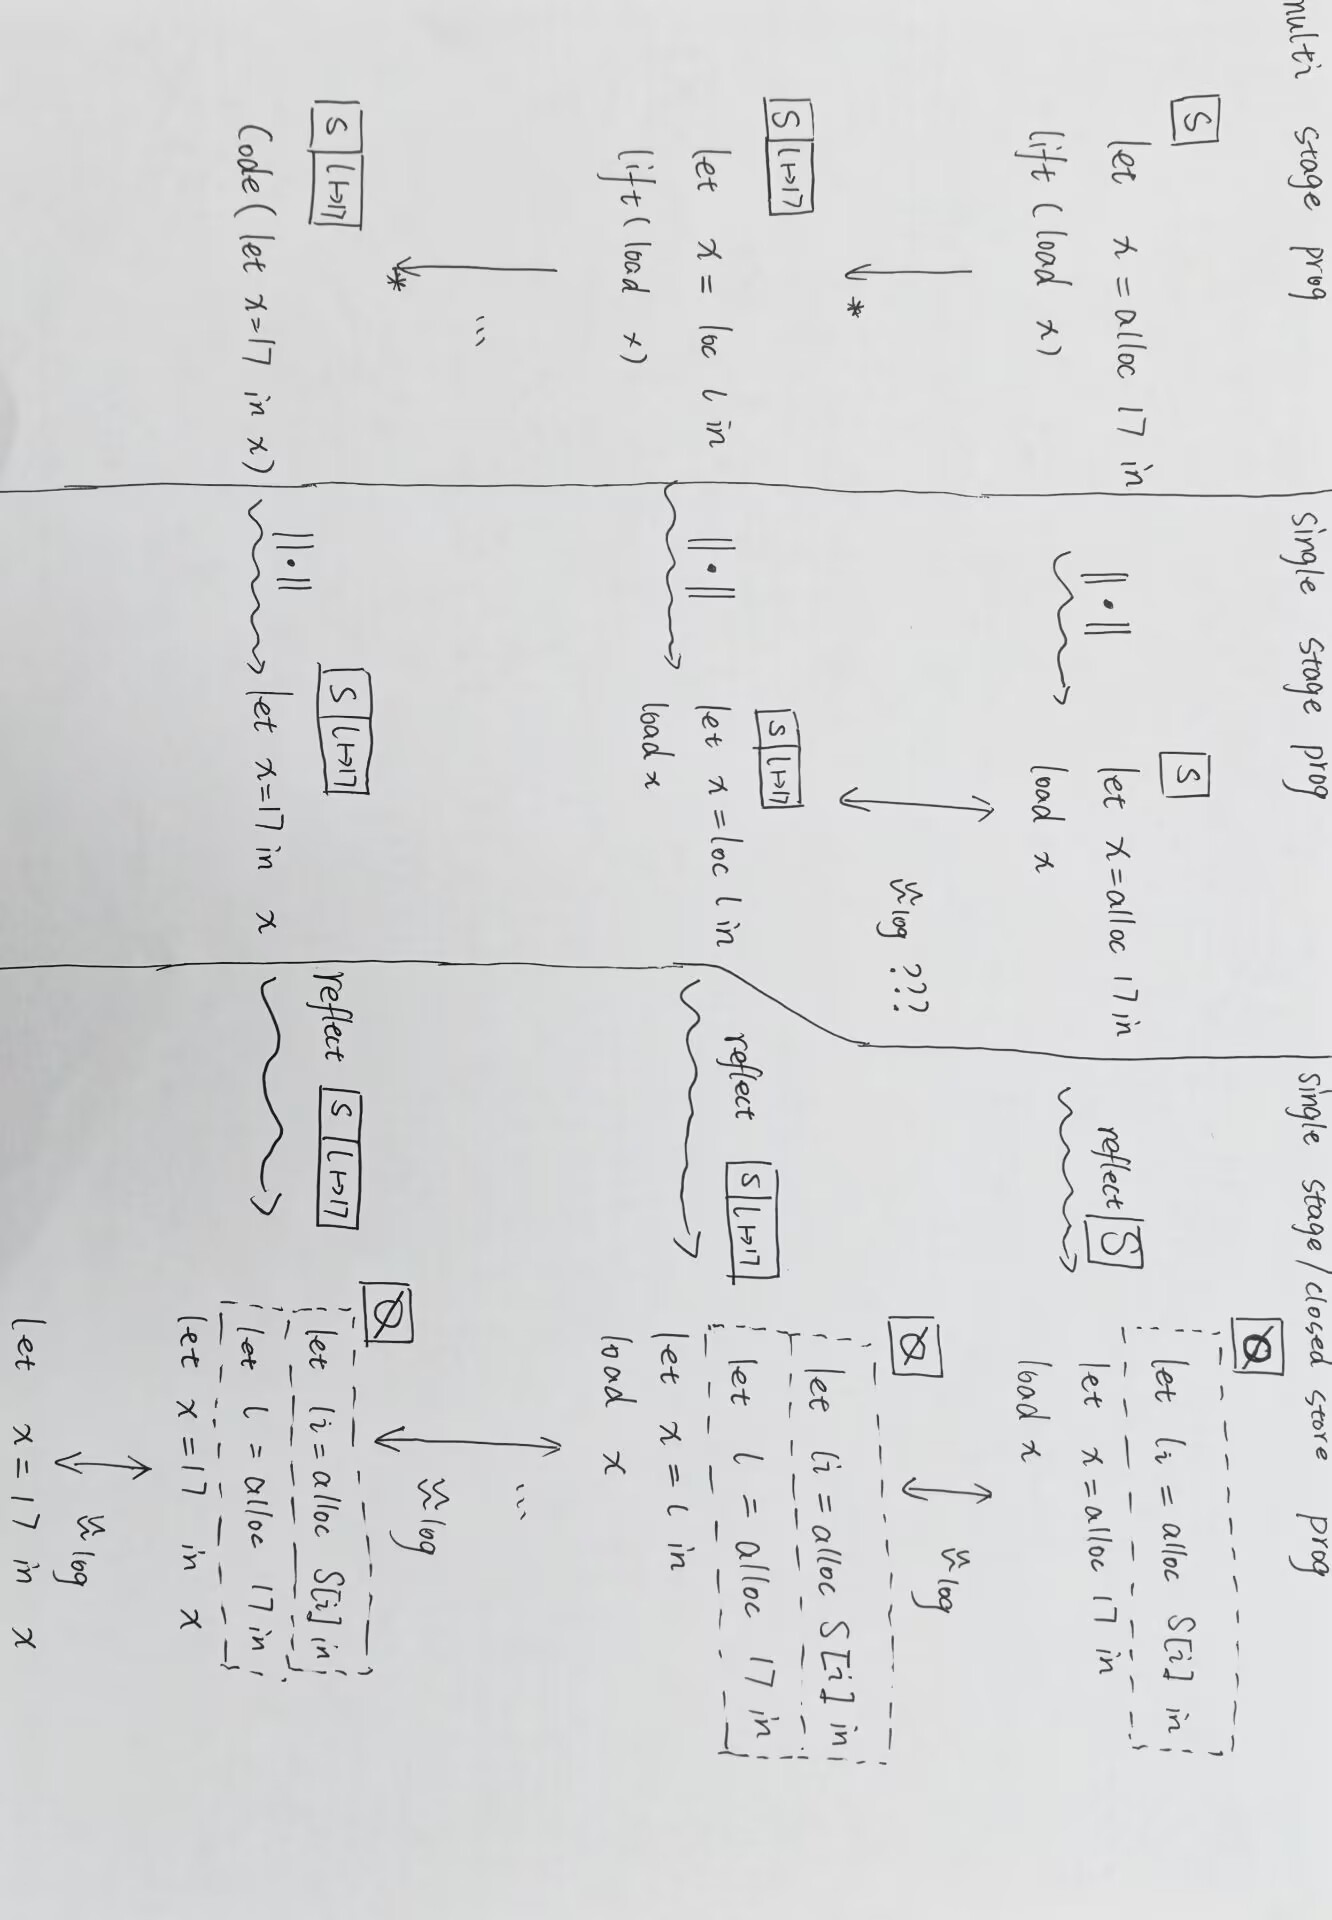 multi stage prog
S
let x = alloc 17 in
lift (load x)
*
S l↦17
let x = loc l in
lift (load x)
...
*
S l↦17
Code (let x=17 in x)
single stage prog
||·||
S
let x=alloc 17 in
load x
≈log ???
||·||
S l↦17
let x = loc l in
load x
||·||
S l↦17
let x=17 in x
single stage/closed store prog
reflect S
∅
let li = alloc S[i] in
let x = alloc 17 in
load x
≈log
reflect S l↦17
∅
let li = alloc S[i] in
let l = alloc 17 in
let x = l in
load x
...
≈log
reflect S l↦17
∅
let li = alloc S[i] in
let l = alloc 17 in
let x = 17 in x
≈log
let x = 17 in x